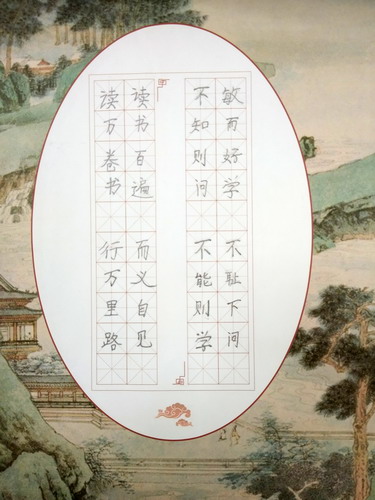 敏而好学 不耻下问
不知则问 不能则学
读书百遍 而义自见
读万卷书 行万里路